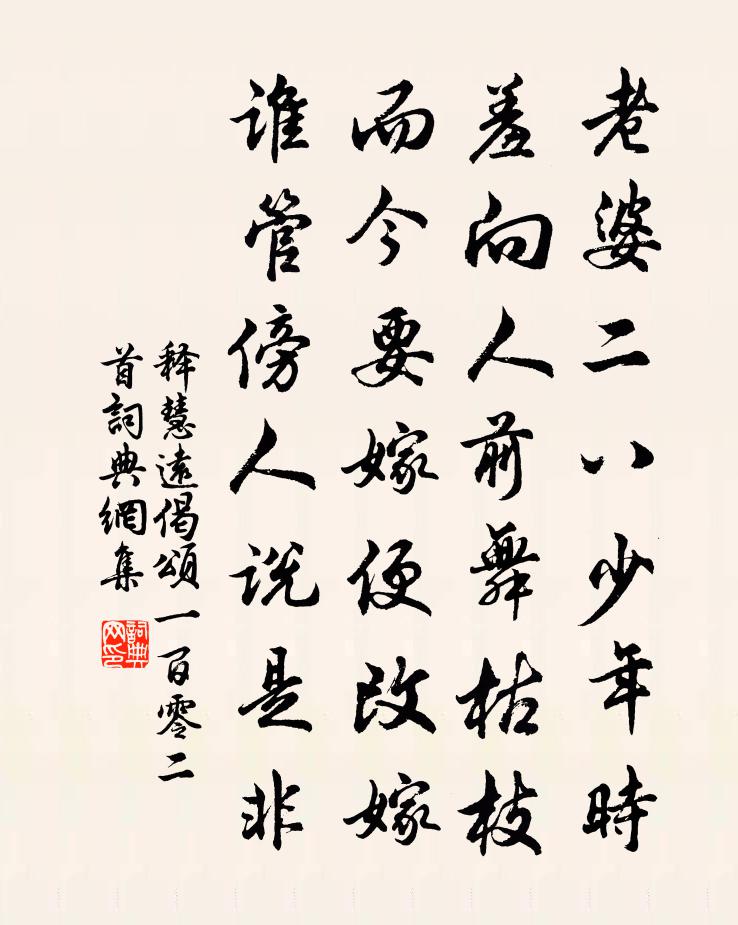 老婆二八少年時
羞向人前舞枯枝
而今要嫁便改嫁
誰管傍人说是非
释慧遠偈頌一百零二
首詞典網集
詞典网印